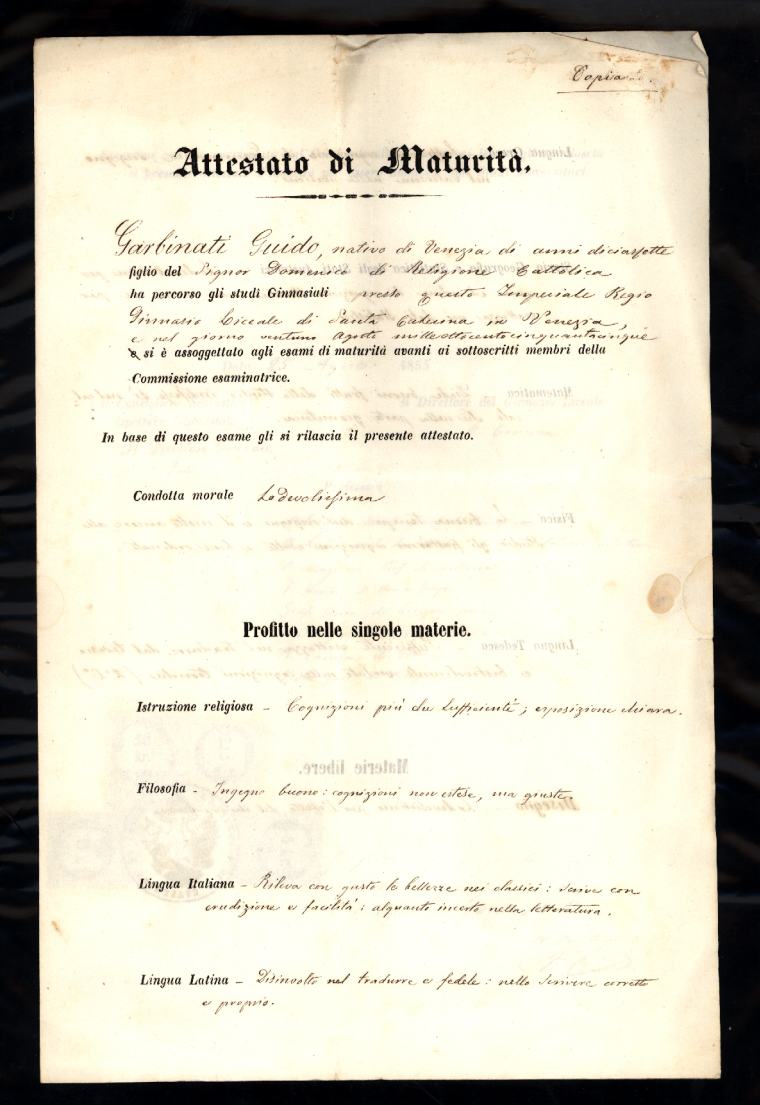 Attestato di Maturità.
Garbinati Guido, nativo di Venezia di anni diciasette
figlio del Signor Domenico di Religione Cattolica
ha percorso gli studi Ginnasiali presso questo Imperiale Regio
Ginnasio Liceale di Santa Caterina in Venezia,
e nel giorno ventuno Agosto milleottocentocinquantacinque
e si è assoggettato agli esami di maturità avanti ai sottoscritti membri della
Commissione esaminatrice.
In base di questo esame gli si rilascia il presente attestato.
Condotta morale Lodevolissima
Profitto nelle singole materie.
Istruzione religiosa – Cognizioni più che sufficienti; esposizione chiara.
Filosofia – Ingegno buono: cognizioni non estese, ma giuste.
Lingua Italiana – Rileva con gusto le bellezze nei classici: scrive con
erudizione e facilità: alquanto incerto nella letteratura.
Lingua Latina – Disinvolto nel tradurre e fedele: nello scrivere corretto
e proprio.